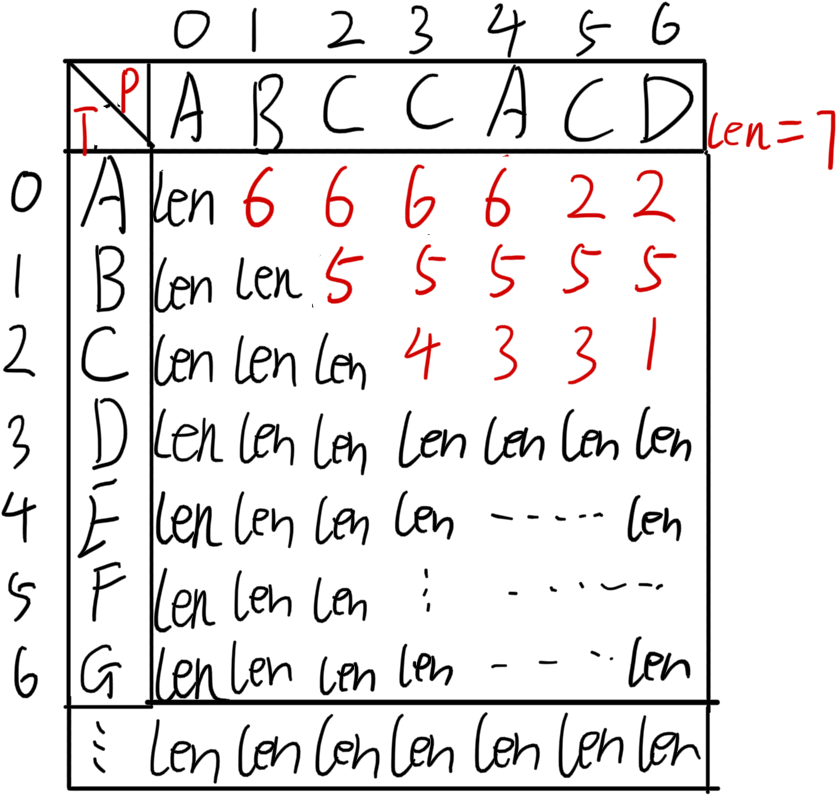 0 1 2 3 4 5 6
T P A B C C A C D len=7
0 A len 6 6 6 6 2 2
1 B len len 5 5 5 5 5
2 C len len len 4 3 3 1
3 D len len len len len len len
4 E len len len len ----- len
5 F len len len ⋮ -----
6 G len len len len ---- len
⋮ len len len len len len len